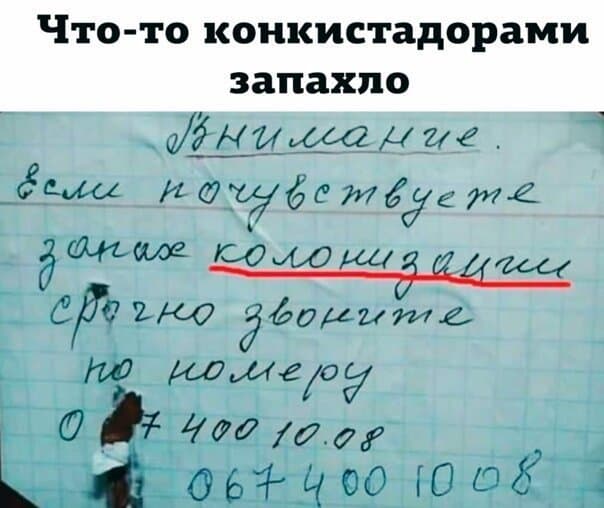 Что-то конкистадорами
запахло
Внимание.
Если почувствуете
запах колонизации
срочно звоните
по номеру
0 7 400 10.08
067 400 10 08